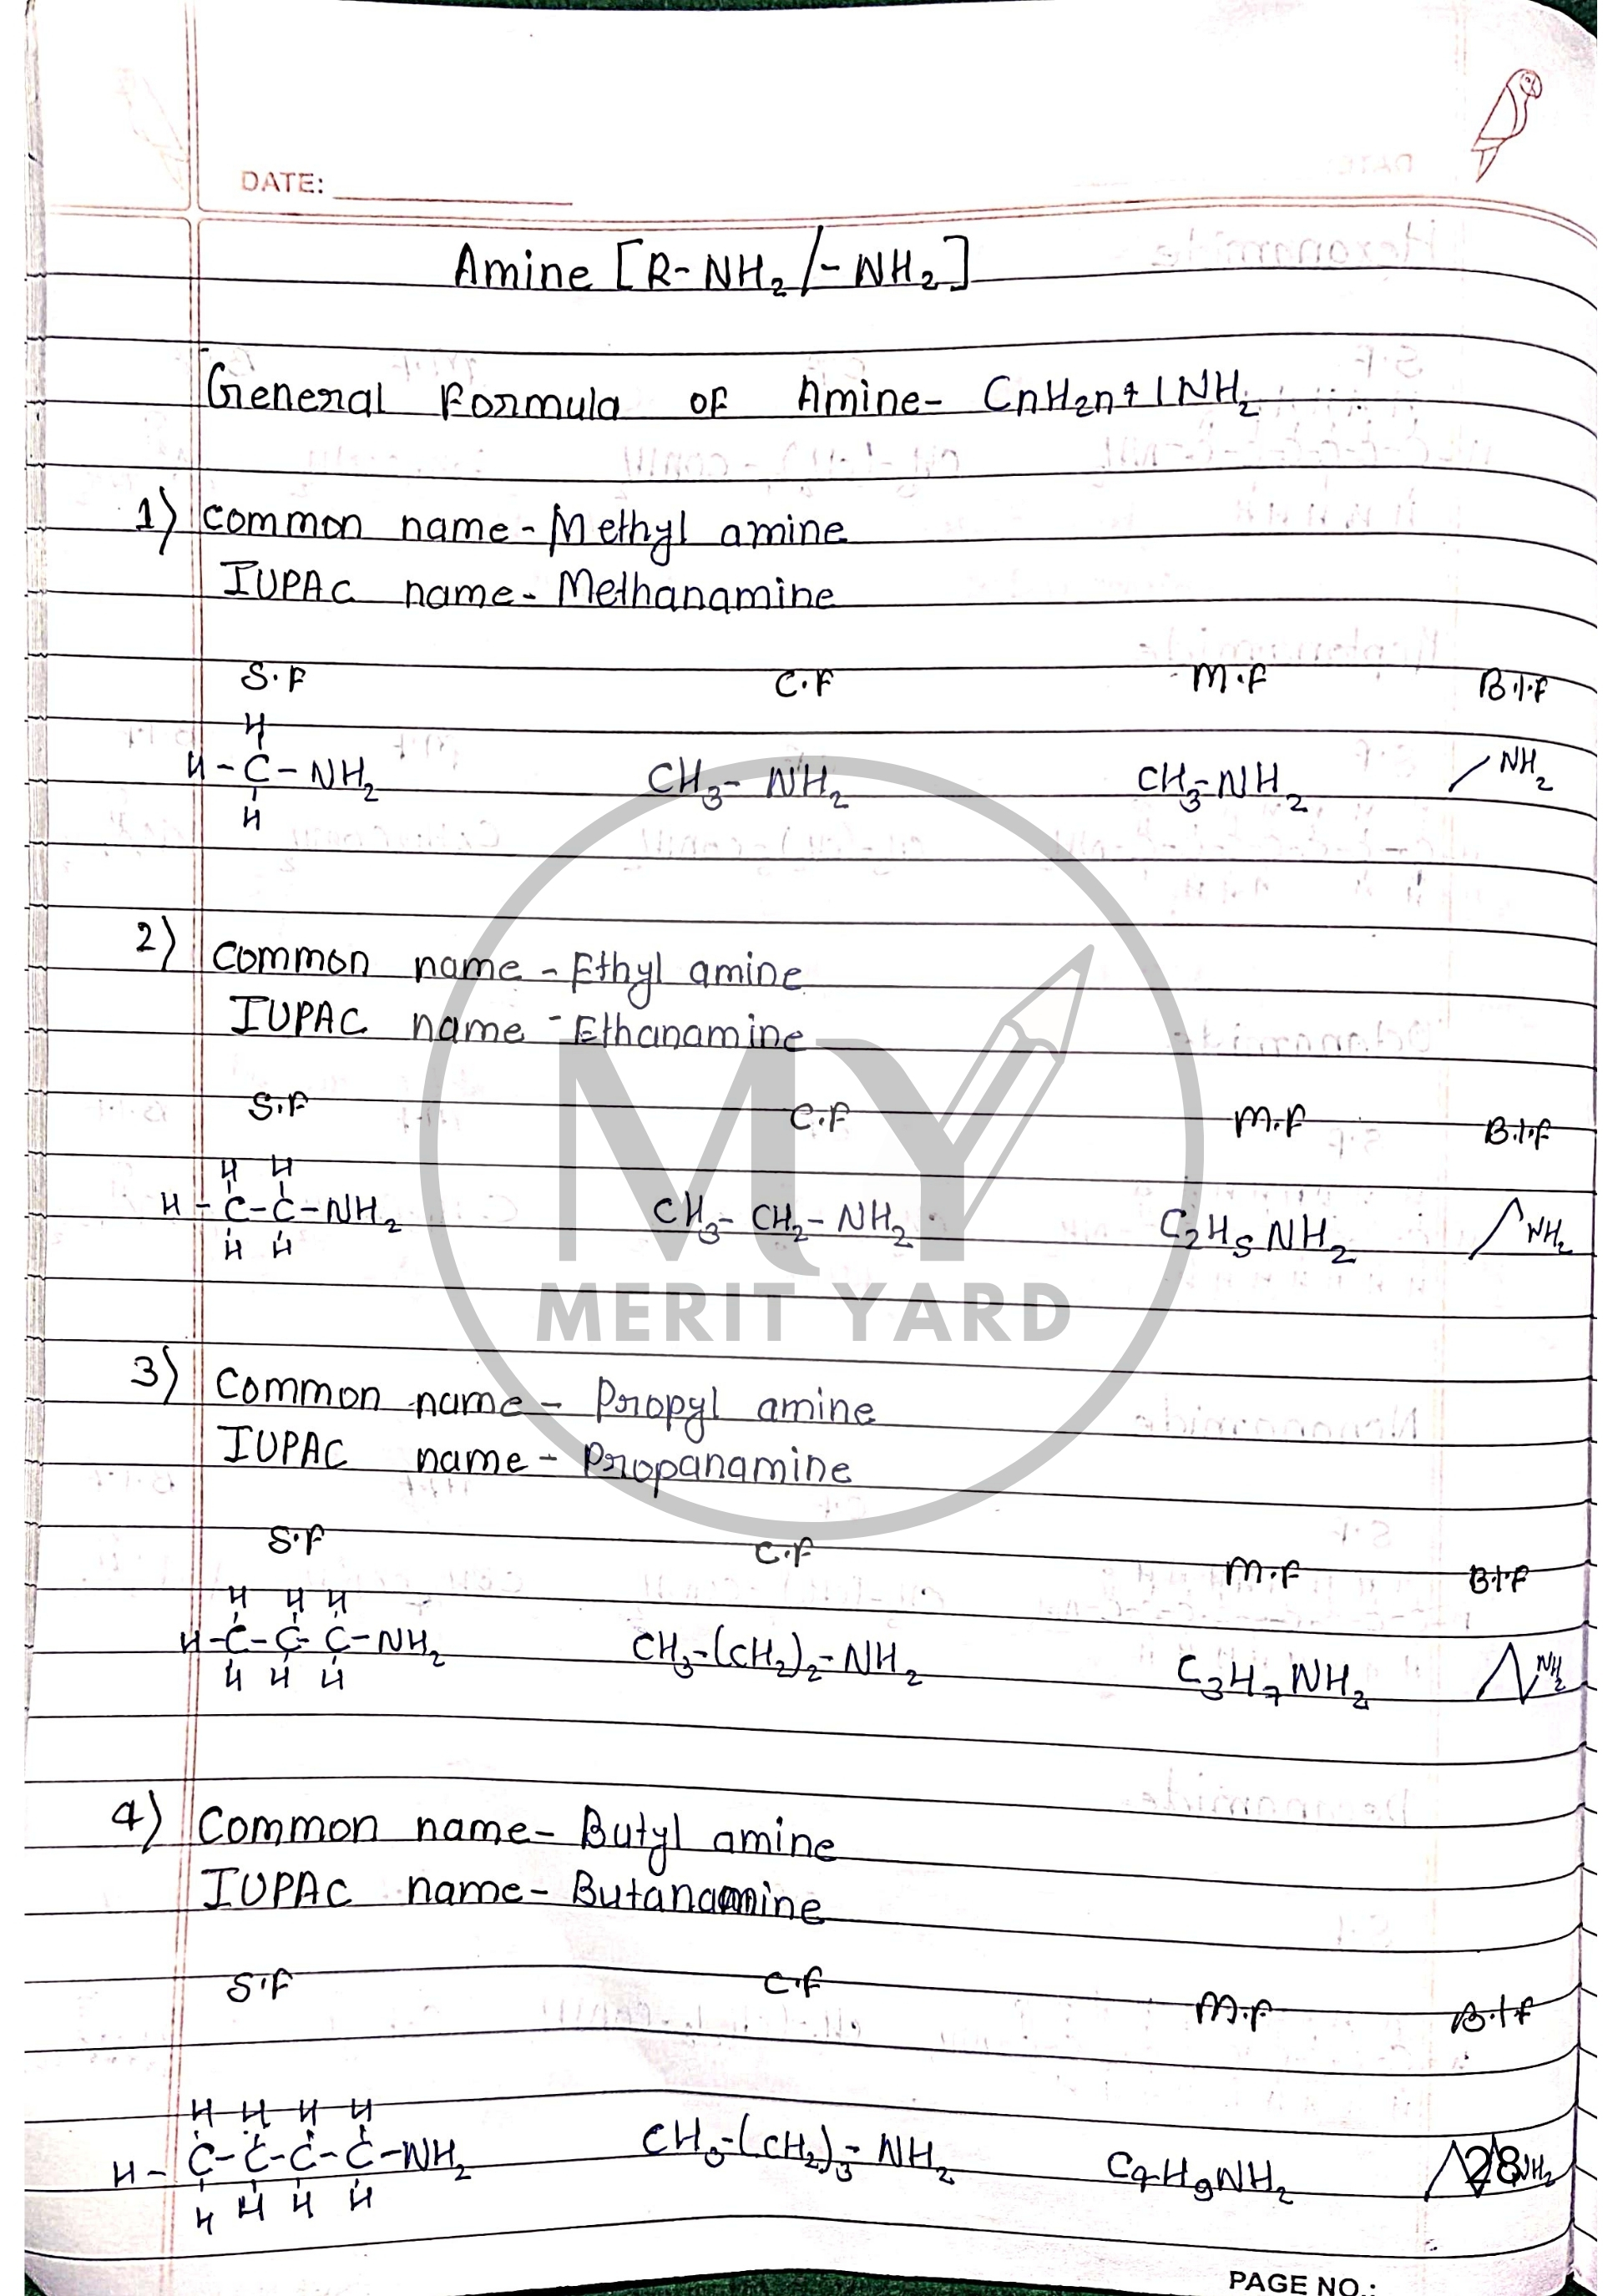 DATE:
Amine [R-NH₂/-NH₂]
General Formula of Amine- CnH2n+1NH₂
1) Common name - Methyl amine
IUPAC name - Methanamine
S.F C.F M.F B.l.F
H
H - C - NH₂ CH₃- NH₂ CH₃-NH₂ NH₂
H
2) Common name - Ethyl amine
IUPAC name - Ethanamine
S.F C.F M.F B.l.F
H H
H - C - C - NH₂ CH₃- CH₂- NH₂ C₂H₅NH₂ NH₂
H H
MY
MERIT YARD
3) Common name - Propyl amine
IUPAC name - Propanamine
S.F C.F M.F B.l.F
H H H
H - C - C - C - NH₂ CH₃-(CH₂)₂-NH₂ C₃H₇NH₂ NH₂
H H H
4) Common name - Butyl amine
IUPAC name - Butanamine
S.F C.F M.F B.l.F
H H H H
H - C - C - C - C - NH₂ CH₃-(CH₂)₃- NH₂ C₄H₉NH₂ NH₂
H H H H
28
PAGE NO.: